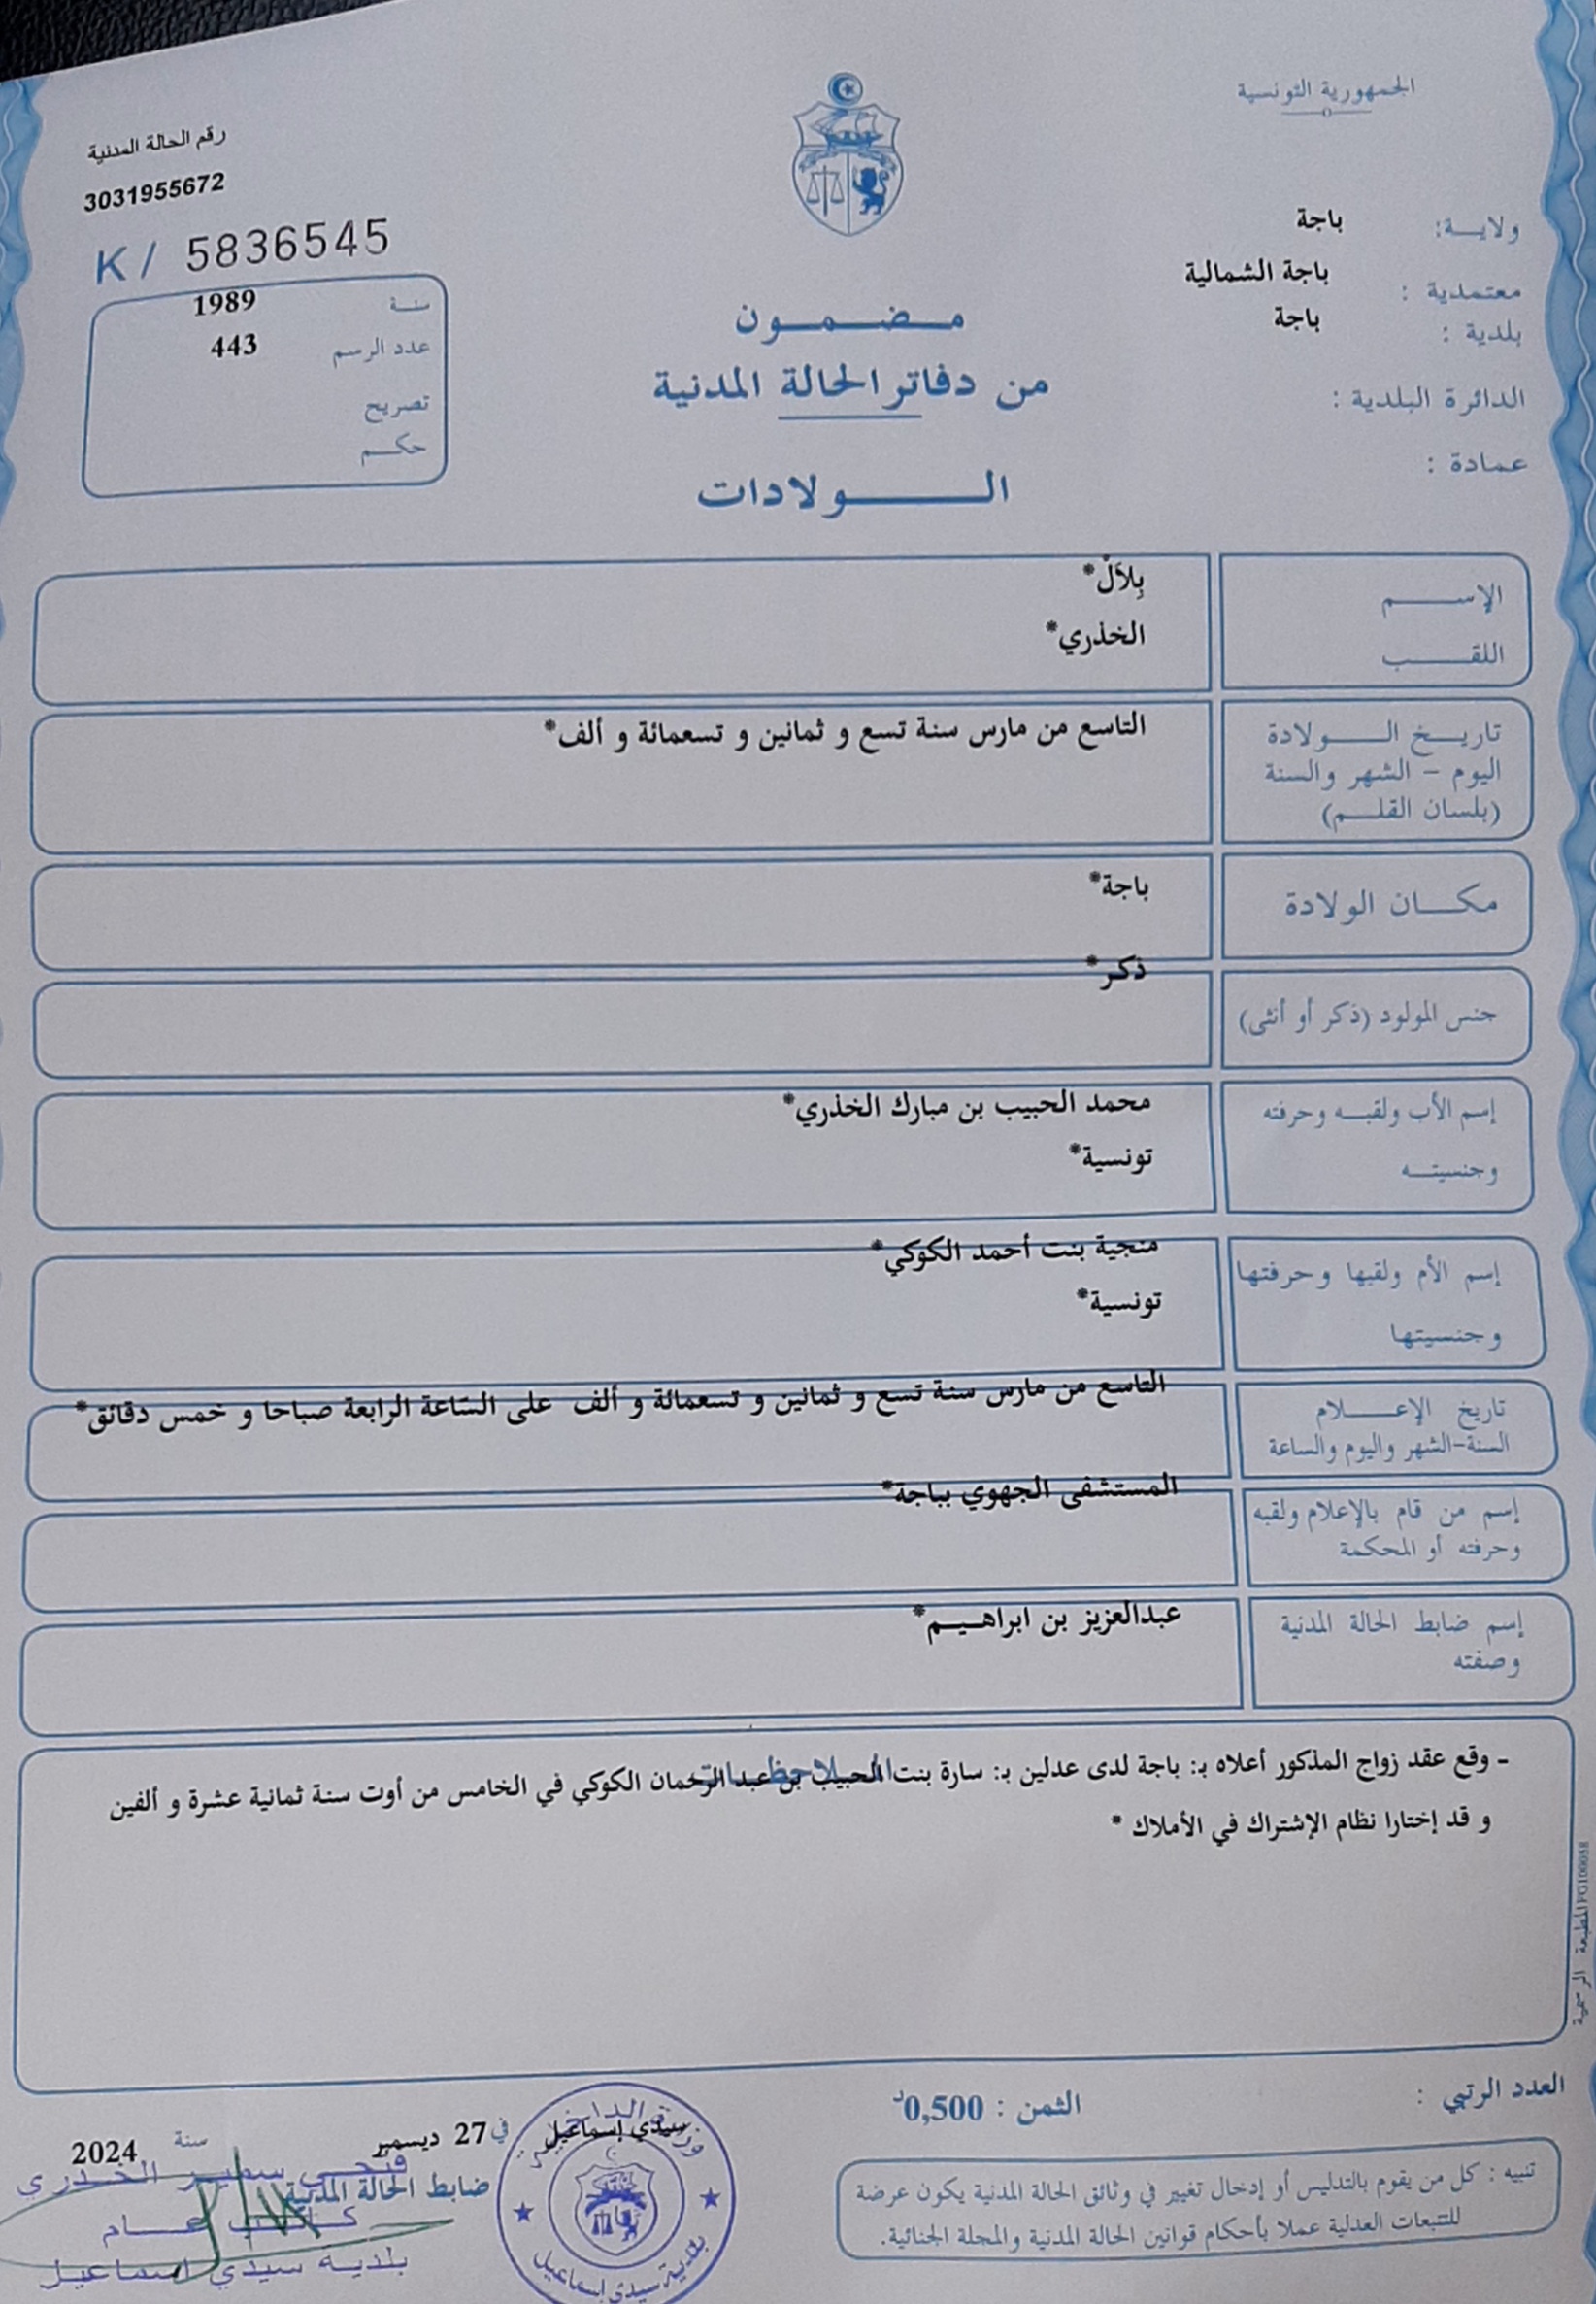 الجمهورية التونسية
رقم الحالة المدنية
3031955672
K/ 5836545
ولايـــة: باجة
معتمدية : باجة الشمالية
بلدية : باجة
الدائرة البلدية :
عمادة :
سنـة 1989
عدد الرسم 443
تصريح
حكــم
مـــضـــمـــون
من دفاتر الحالة المدنية
الـــــــولادات
الإســـــم بِلاَلْ*
اللقــــب الخذري*
تاريــخ الـــــولادة التاسع من مارس سنة تسع و ثمانين و تسعمائة و ألف*
اليوم – الشهر والسنة
(بلسان القلـــم)
مكـــان الولادة باجة*
جنس المولود (ذكر أو أنثى) ذكر*
إسم الأب ولقبـــه وحرفته محمد الحبيب بن مبارك الخذري*
وجنسيتــه تونسية*
إسم الأم ولقبها وحرفتها منجية بنت أحمد الكوكي*
وجنسيتها تونسية*
تاريخ الإعــــلام التاسع من مارس سنة تسع و ثمانين و تسعمائة و ألف على السّاعة الرابعة صباحا و خمس دقائق*
السنة-الشهر واليوم والساعة
إسم من قام بالإعلام ولقبه المستشفى الجهوي بباجة*
وحرفته أو المحكمة
إسم ضابط الحالة المدنية عبدالعزيز بن ابراهـــيــم*
وصفته
الملاحظـــات
- وقع عقد زواج المذكور أعلاه بـ: باجة لدى عدلين بـ: سارة بنت الحبيب بن عبد الرحمان الكوكي في الخامس من أوت سنة ثمانية عشرة و ألفين
و قد إختارا نظام الإشتراك في الأملاك *
المطبعة الرسمية FG100058
العدد الرتبي :
الثمن : 0,500د
سيدي إسماعيل في 27 ديسمبر سنة 2024
ضابط الحالة المدنية
تنبيه : كل من يقوم بالتدليس أو إدخال تغيير في وثائق الحالة المدنية يكون عرضة
للتتبعات العدلية عملا بأحكام قوانين الحالة المدنية والمجلة الجنائية.
وزارة الداخلية
بلدية سيدي إسماعيل
فتحـــي سميـــر الخـــذري
كـــاتـــب عـــــام
بلديـــة سيدي اسمـاعيـــل